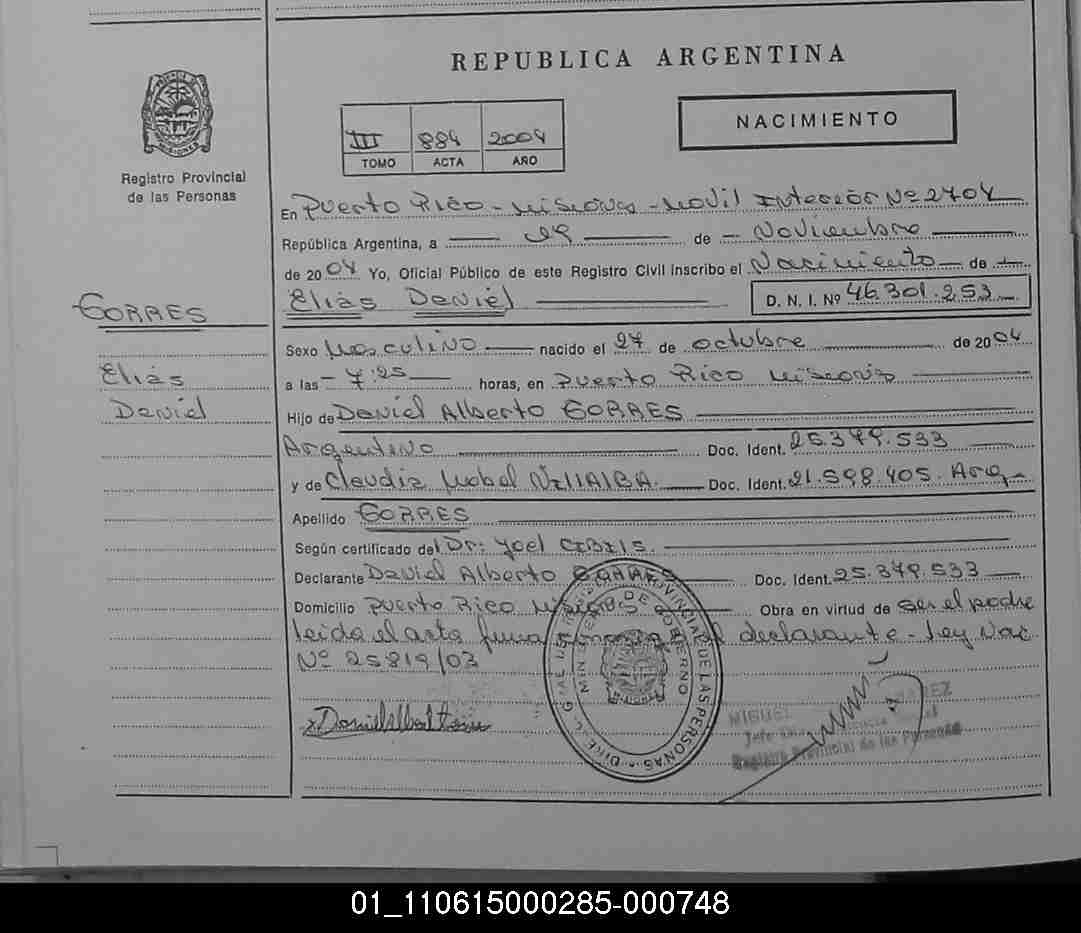 REPUBLICA ARGENTINA
NACIMIENTO
III 884 2004
TOMO ACTA AÑO
Registro Provincial
de las Personas
MISIONES
En Puerto Rico - Misiones - Movil Interior Nº 2704
República Argentina, a 29 de - Noviembre
de 2004 Yo, Oficial Público de este Registro Civil inscribo el Nacimiento de
Eliás Daniel D. N. I. Nº 46.301.253
GORRES
Eliás
Daniel
Sexo Masculino nacido el 27 de octubre de 2004
a las - 7:25 horas, en Puerto Rico Misiones
Hijo de Daniel Alberto GORRES
Argentino Doc. Ident. 25.379.533
y de Claudia Mabel VILLALBA. Doc. Ident. 21.598.405. Arg.
Apellido GORRES
Según certificado del Dr: Yoel
Declarante Daniel Alberto GORRES Doc. Ident. 25.379.533
Domicilio Puerto Rico Misiones Obra en virtud de ser el padre
leida el acta firma declarante - Ley Nac.
Nº 25819/03
DE LAS PERSONAS
MINISTERIO DE GOBIERNO
MIGUEL
Registro Provincial de las Personas
01_110615000285-000748